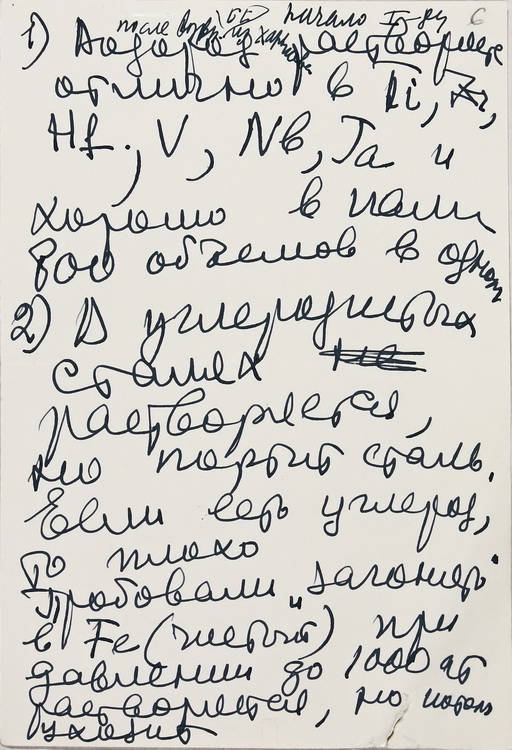 после
начало
6
1) Водород растворяется
отлично в Ti, Zr,
Hf, V, Nb, Ta и
хорошо в палл
800 объемов в одном
2) В углеродистых
сталях не
растворяется,
но портит сталь.
Если есть углерод,
то плохо
Пробовали "загонять"
в Fe (чистый) при
давлении до 1000 ат
растворяется, но потом
уходит